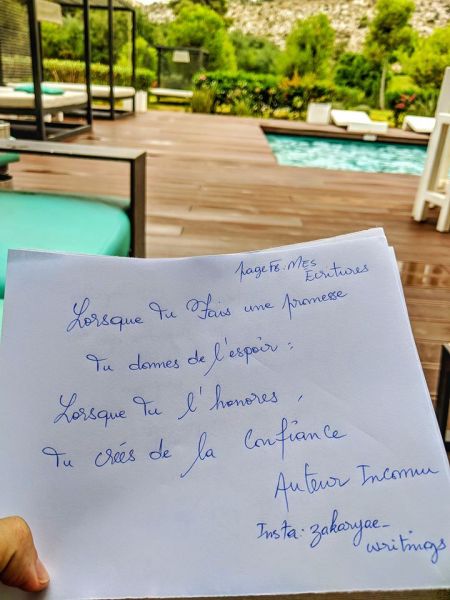 page FB: MES
Ecritures
Lorsque tu Fais une promesse
Tu donnes de l'espoir ;
Lorsque Tu l'honores,
Tu créés de la Confiance
Auteur Inconnu
Insta: zakaryae_
writings